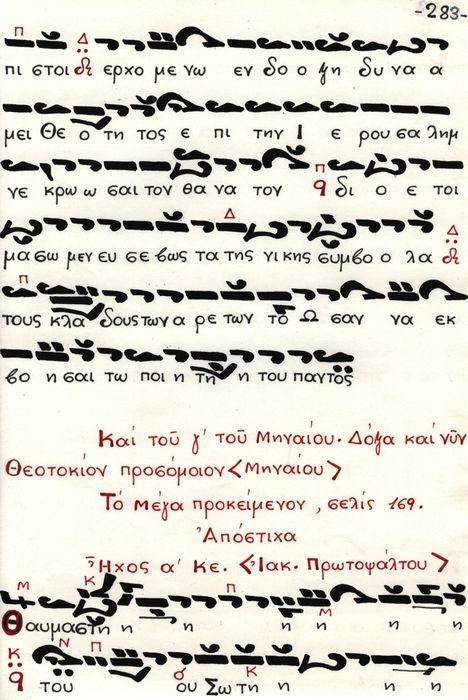 -283-
πι στοι δι ερχο με νω εν δο ο ξη δυ να α
μει Θε ο τη τος ε πι την Ι ε ρου σα λημ
νε κρω ω σαι τον θα να τον δι ο ε τοι
μα σω μεν ευ σε βως τα της νι κης συμ βο ο λα
τους κλα δους των α ρε των το Ω σαν να εκ
βο η σαι τω ποι η τη η του παντος
Καί τοῦ γ΄ τοῦ Μηναίου. Δόξα καί νῦν
Θεοτοκίον προσόμοιον <Μηναίου>
Τό μέγα προκείμενον, σελίς 169.
Ἀπόστιχα
Ἦχος α΄ Κε. <Ἰακ. Πρωτοψάλτου>
Θαυμαστη η η η η η η
του ου Σω τη η η η η